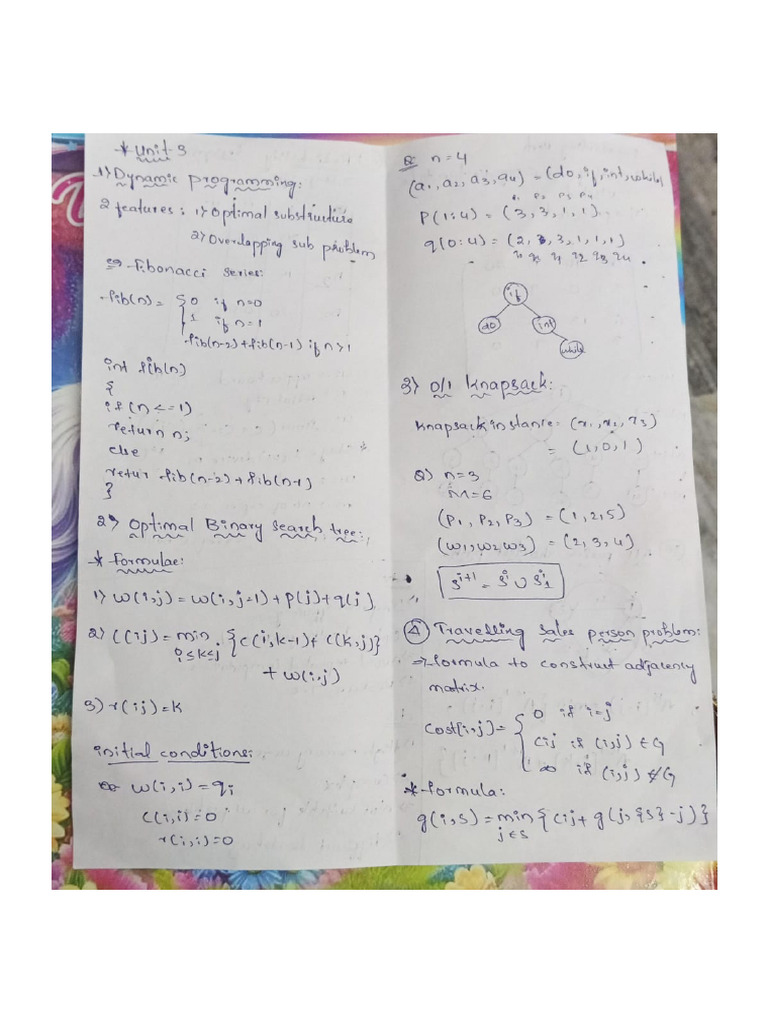 * Unit-3
1) Dynamic programming:
2 features: 1) Optimal substructure
2) Overlapping sub problem
eg- fibonacci series:
fib(n) = { 0 if n=0
1 if n=1
fib(n-2)+fib(n-1) if n>1
int fib(n)
{
if (n<=1)
return n;
else
retur fib(n-2)+fib(n-1)
}
2) Optimal Binary search tree:
* Formulae:
1) w(i,j) = w(i,j-1)+p(j)+q(j)
2) C(ij) = min {c(i,k-1)+ C(k,j)}
i≤k≤j
+ w(i,j)
3) r(ij)=k
initial conditions:
w(i,i) = qi
c(i,i)=0
r(i,i)=0
Q: n=4
(a1,a2,a3,a4) = (do,if,int,while)
P1 P2 P3 P4
P(1:4) = (3,3,1,1)
q(0:4) = (2,3,3,1,1,1)
q1 q2 q3 q4
if
do int
while
3) 0/1 Knapsack:
Knapsack instance = (x1,x2,x3)
= (1,0,1)
Q) n=3
M=6
(P1, P2, P3) = (1,2,5)
(w1,w2w3) = (2,3,4)
S^i+1 = S^i U S^i_1
4) Travelling sales person problem:
⇒ formula to construct adjacency
matrix.
cost[i,j] = { 0 if i=j
Cij if (i,j) ∈ G
∞ if (i,j) ∉ G
* formula:
g(i,s) = min {Cij + g(j,{s}-j)}
j∈s